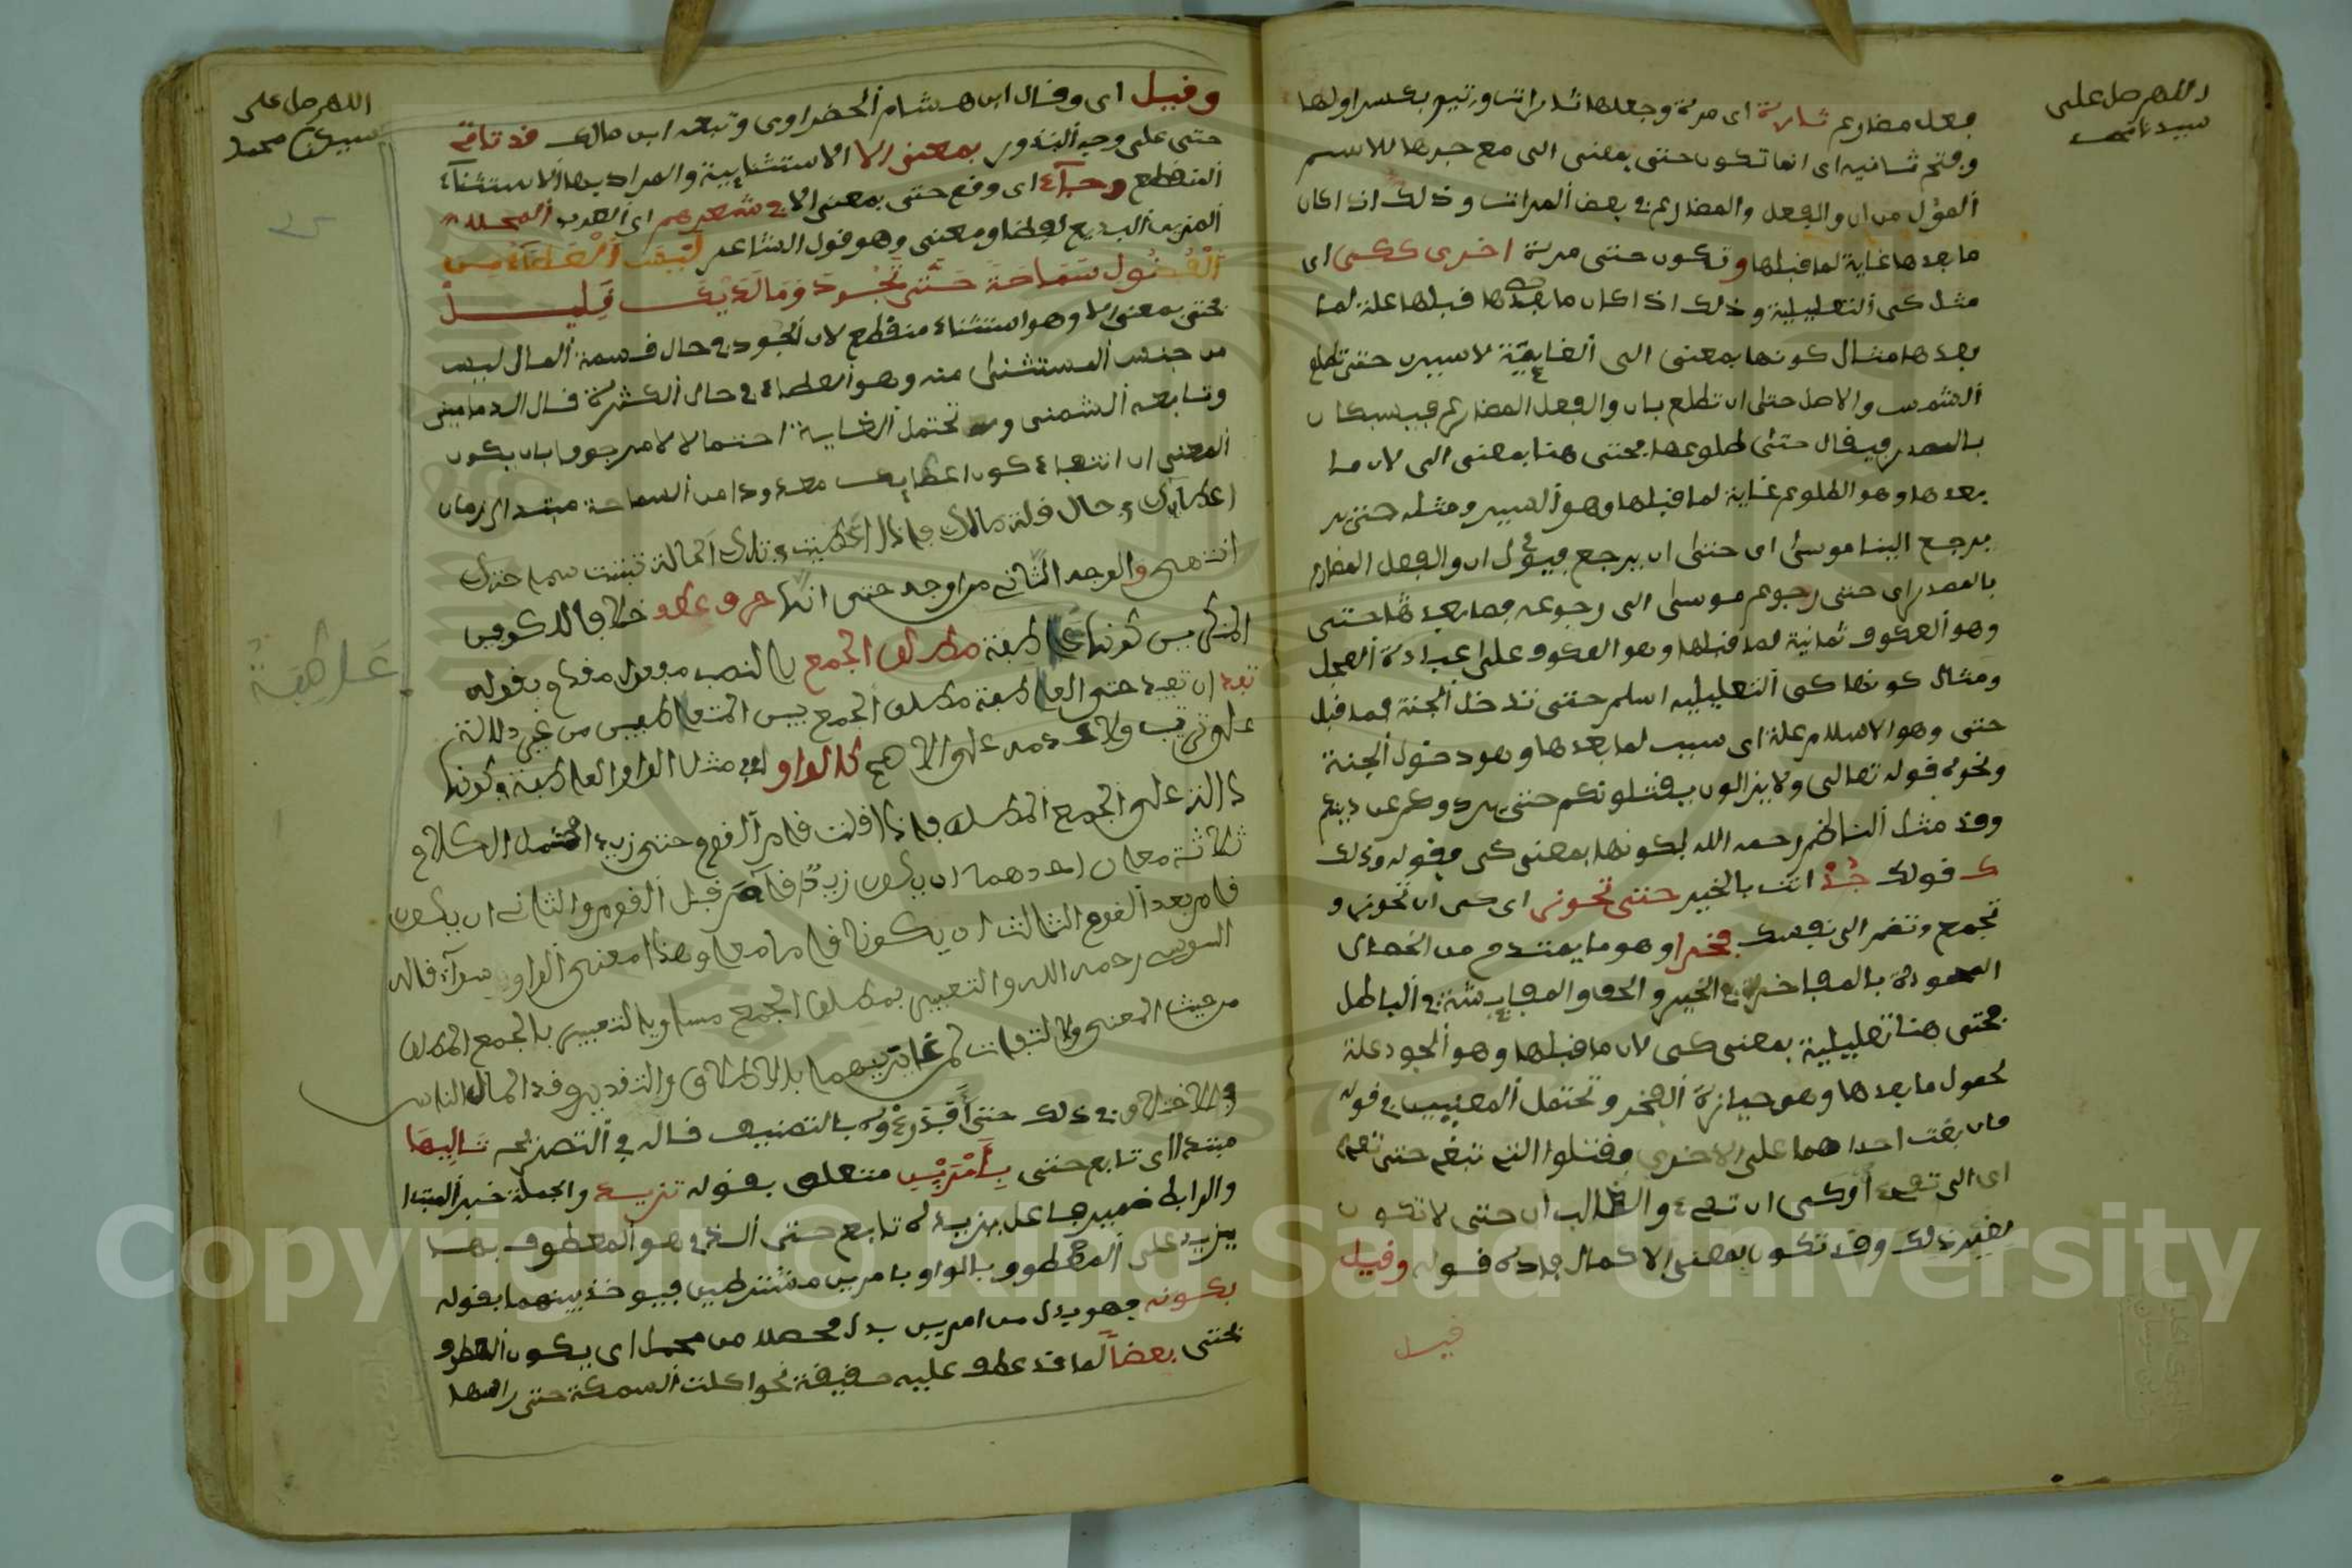 اللهم صل على
سيدنا محمد
فعل مضارع تارة اى مرة وجعلها ثلاث مرات ورتبه بكسر اولها
وفتح ثانيه اى انها تكون حتى بمعنى الى مع جرها للاسم
المؤل من ان والفعل والمضارع في بعض المرات وذلك اذا كان
ما بعدها غاية لما قبلها وتكون حتى مرة اخرى ككى اى
مثل كى التعليلية وذلك اذا كان ما قبلها علة لما
بعدها مثال كونها بمعنى الى الغايية لاسيرن حتى تطلع
الشمس والاصل حتى ان تطلع بان والفعل المضارع فيسبكان
بالمصدر فيقال حتى طلوعها فحتى هنا بمعنى الى لان ما
بعدها وهو الطلوع غاية لما قبلها وهو السير ومثله حتى
يرجع الينا موسى اى حتى ان يرجع فيؤل ان والفعل المضارع
بالمصدر اى حتى رجوع موسى الى رجوعه فما بعدها حتى
وهو العكوف غاية لما قبلها وهو العكوف على عبادة العجل
ومثال كونها كى التعليلية اسلم حتى تدخل الجنة فما قبل
حتى وهو الاسلام علة اى سبب لما بعدها وهو دخول الجنة
ونحوه قوله تعالى ولا يزالون يقتلونكم حتى يردوكم عن دينكم
وقد مثل الناظم رحمه الله لكونها بمعنى كى فقوله وذلك
ك قولك جد انت بالخير حتى تحوز اى كى ان تحوز و
تجمع وتضم الى نفسك فخرا وهو ما يمتدح من الخصال
المحمودة بالمفاخرة في الخير والحق والمفايشة في الباطل
فحتى هنا تعليلية بمعنى كى لان ما قبلها وهو الجود علة
لحصول ما بعدها وهو حيازة الفخر وتحتمل المعنيين في قوله
فان بغت احداهما على الاخرى فقتلوا التى تبغى حتى تفىء
اى الى تفىء أو كى ان تفىء والغالب ان حتى لا تكون
لغير ذلك وقد تكون بمعنى الا كما افاده قوله وقيل
قيل
اللهم صل على
سيدنا محمد
وقيل اى وقال ابن هشام الخضراوى وتبعه ابن مالك قد تاتى
حتى على وجه النذور بمعنى الا الاستثنايية والمراد بها الاستثناء
المنقطع وجاء اى وقع حتى بمعنى الا في شعرهم اى العرب
المزين البديع لفظا ومعنى وهو قول الشاعر ليس العطاء من
الفضول سماحة حتى تجود وما لديك قليل
فحتى بمعنى الا وهو استثناء منقطع لان الجود في حال قسمة المال ليس
من جنس المستثنى منه وهو العطاء في حال الكثرة قال الدمامينى
وتابعه الشمنى و تحتمل الغاية احتمالا لا مرجوحا بان يكون
المعنى ان انتفاء كون اعطايك معدودا من السماحة مبتدا الى زمان
اعطايك في حال قلة مالك فاذا اعطيت في تلك الحالة تثبت سماحتك
انتهى والوجه الثاني من اوجه حتى انها حرف عطف خلافا للكوفيين
المنكرين كونها عاطفة مطلق الجمع بالنصب مفعول مقدم بقوله
تفد ان تفيد حتى العاطفة مطلق الجمع بين المتعاطفين من غير دلالة
على ترتيب ولا عدمه على الاصح كالواو اى مثل الواو العاطفة في كونها
دالة على الجمع المطلق فاذا قلت قام القوم حتى زيد احتمل الكلام
ثلاثة معان احدهما ان يكون زيد قام قبل القوم والثانى ان يكون
قام بعد القوم الثالث ان يكونا قاما معا وهذا معنى الواو سواء قاله
السوسى رحمه الله والتعبير بمطلق الجمع مساو بالتعبير بالجمع المطلق
من حيث المعنى ولا التفات لمن غاير بينهما بالاطلاق والتقديرى وقد اطال الناس
والاختلاف في ذلك حتى بالتصنيف قاله في التصريح تاليها
مبتدا اى تابع حتى بأمرين متعلق بقوله تزيد والجملة خبر المبتدا
والرابط ضمير فاعل يزيد لان تابع حتى الذى هو المعطوف بها
يزيد على المعطوف بالواو بامرين مشترطين فيوخذ بينهما بقوله
بكونه فهو بدل من امرين بدل مفصل من مجمل اى يكون المعطوف
بحتى بعضا لما قد عطف عليه حقيقة نحو اكلت السمكة حتى راسها
عاطفة
Copyright © King Saud University